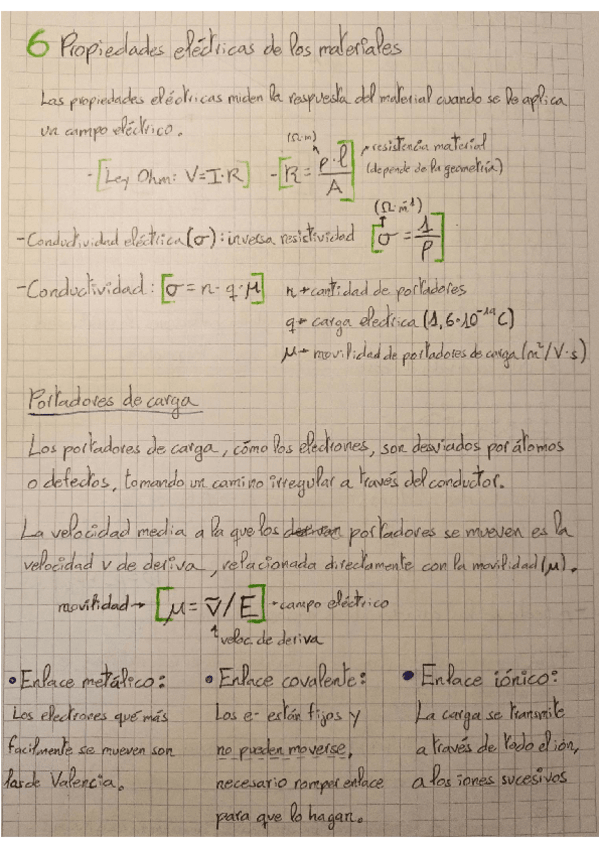 6 Propiedades eléctricas de los materiales
Las propiedades eléctricas miden la respuesta del material cuando se le aplica
un campo eléctrico.
(Ω·m)
-[Ley Ohm: V=I·R] -[R = ρ·l/A] resistencia material
(depende de la geometría)
(Ω·m⁻¹)
-Conductividad eléctrica (σ): inversa resistividad [σ = 1/ρ]
-Conductividad: [σ = n·q·μ] n → cantidad de portadores
q → carga electrica (1,6·10⁻¹⁹ C)
μ → movilidad de portadores de carga (m²/V·s)
Portadores de carga
Los portadores de carga, cómo los electrones, son desviados por átomos
o defectos, tomando un camino irregular a través del conductor.
La velocidad media a la que los portadores se mueven es la
velocidad v de deriva, relacionada directamente con la movilidad (μ).
movilidad → [μ = v̄/E] → campo eléctrico
veloc. de deriva
• Enlace metálico: • Enlace covalente: • Enlace iónico:
Los electrones qué más Los e- están fijos y La carga se transmite
facilmente se mueven son no pueden moverse, a través de todo el ión,
las de Valencia. necesario romper enlace a los iones sucesivos
para que lo hagan.